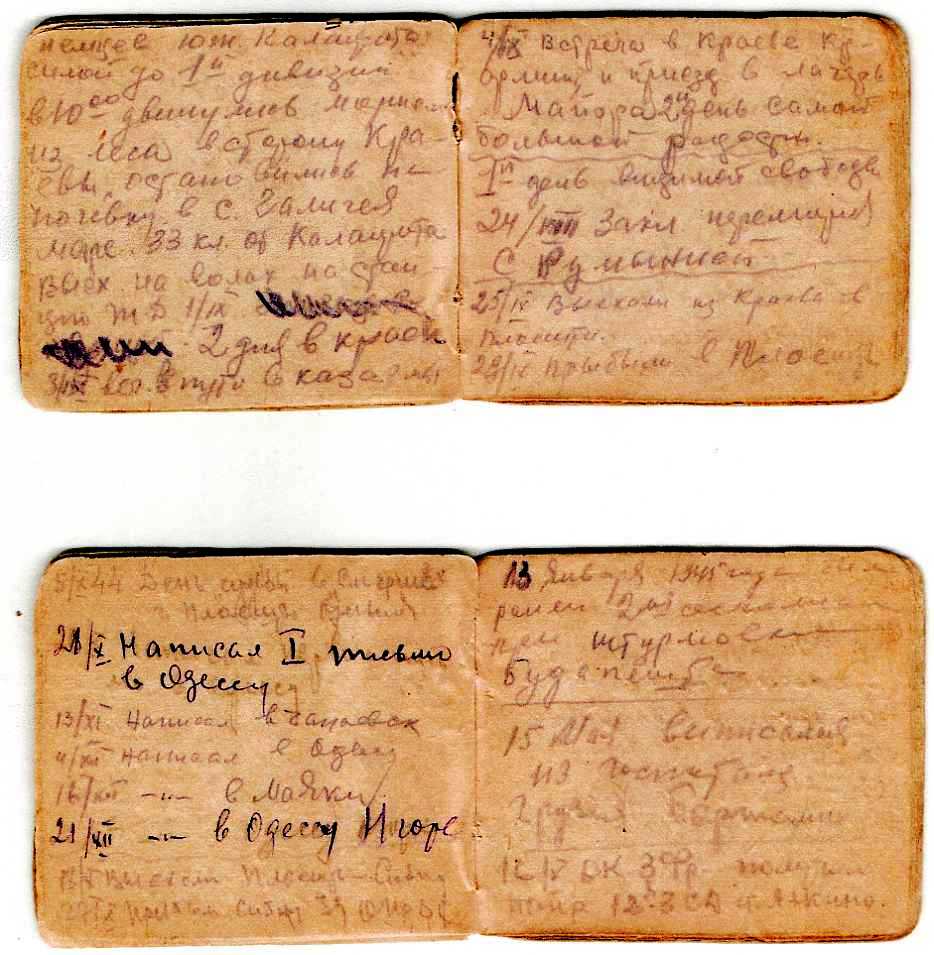 немцев юж. Калафата
силой до 1й дивизии
в 10 00 двинулись маршем
из леса в сторону Кра-
евы, остановились на
ночёвку в с. Галичея
маре. 33 кл. от Калафата
выех на волах на стан-
цию Ж Д 1/IX
2 дня в краев
3/IX в пути в казармы
4/IX Встреча в Краеве кр
армии и приезд в лагерь
Майора 2й день самой
большой радости.
1й день видимой свободы
24/VIII Закл перемирия
с Румынией
25/IX Выехали из Краева в
Плоешти.
28/IX прибыли в Плоешти
5/X 44 День
28/X Написал I письмо
в Одессу
13/XI Написал в
4/XII Написал в Одессу
16/XII -"- в Маяки
21/XII -"- в Одессу Игорю
Выехали Плоешт-Сибиу
13 Января 1945 года был
ранен 2мя осколками
при штурмовке
Будапешта
15 Мая выписался
из госпиталя
12/V ОК 3 Фр. получил